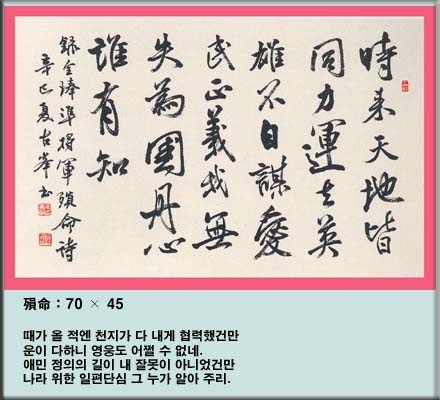 時来天地皆
同力運去英
雄不自謀愛
民正義我無
失為國丹心
誰有知
錄全琫準將軍殞命詩
辛巳夏古峯書
殞命 : 70 × 45
때가 올 적엔 천지가 다 내게 협력했건만
운이 다하니 영웅도 어쩔 수 없네.
애민 정의의 길이 내 잘못이 아니었건만
나라 위한 일편단심 그 누가 알아 주리.